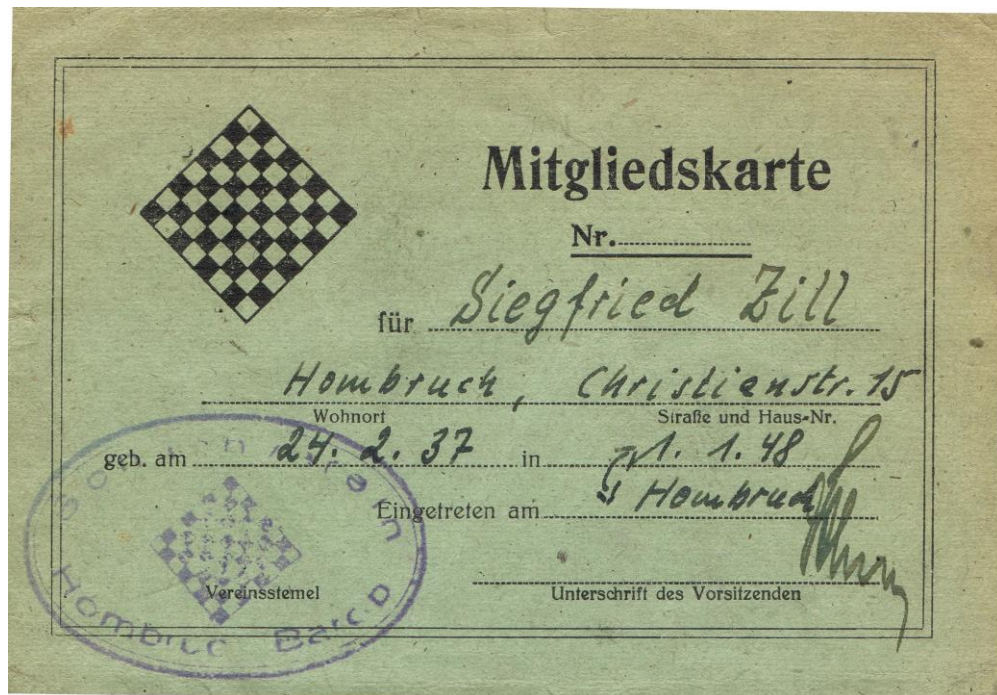 Mitgliedskarte
Nr.
für Siegfried Zill
Hombruch, Christienstr. 15
Wohnort Straße und Haus-Nr.
geb. am 24. 2. 37 in 1. 1. 48
Eingetreten am Hombruch
Vereinsstemel Unterschrift des Vorsitzenden